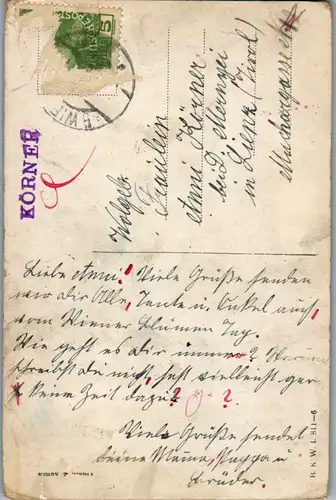 KÖRNER
Wohlgeb.
Fräulein
Anni Körner
bei D.
in Lienz (Tirol)
Muchargasse
Liebe Anni! Viele Grüße senden
wir dir Alle, Tante u. Onkel auch,
vom Wiener Blumen Tag.
Wie geht es dir immer? Warum
schreibst du nicht, hast vielleicht gar
keine Zeit dazu? ?
Viele Grüße sendet
deine Mama, Pappa u
Brüder.
B.K.W.I. 811-6